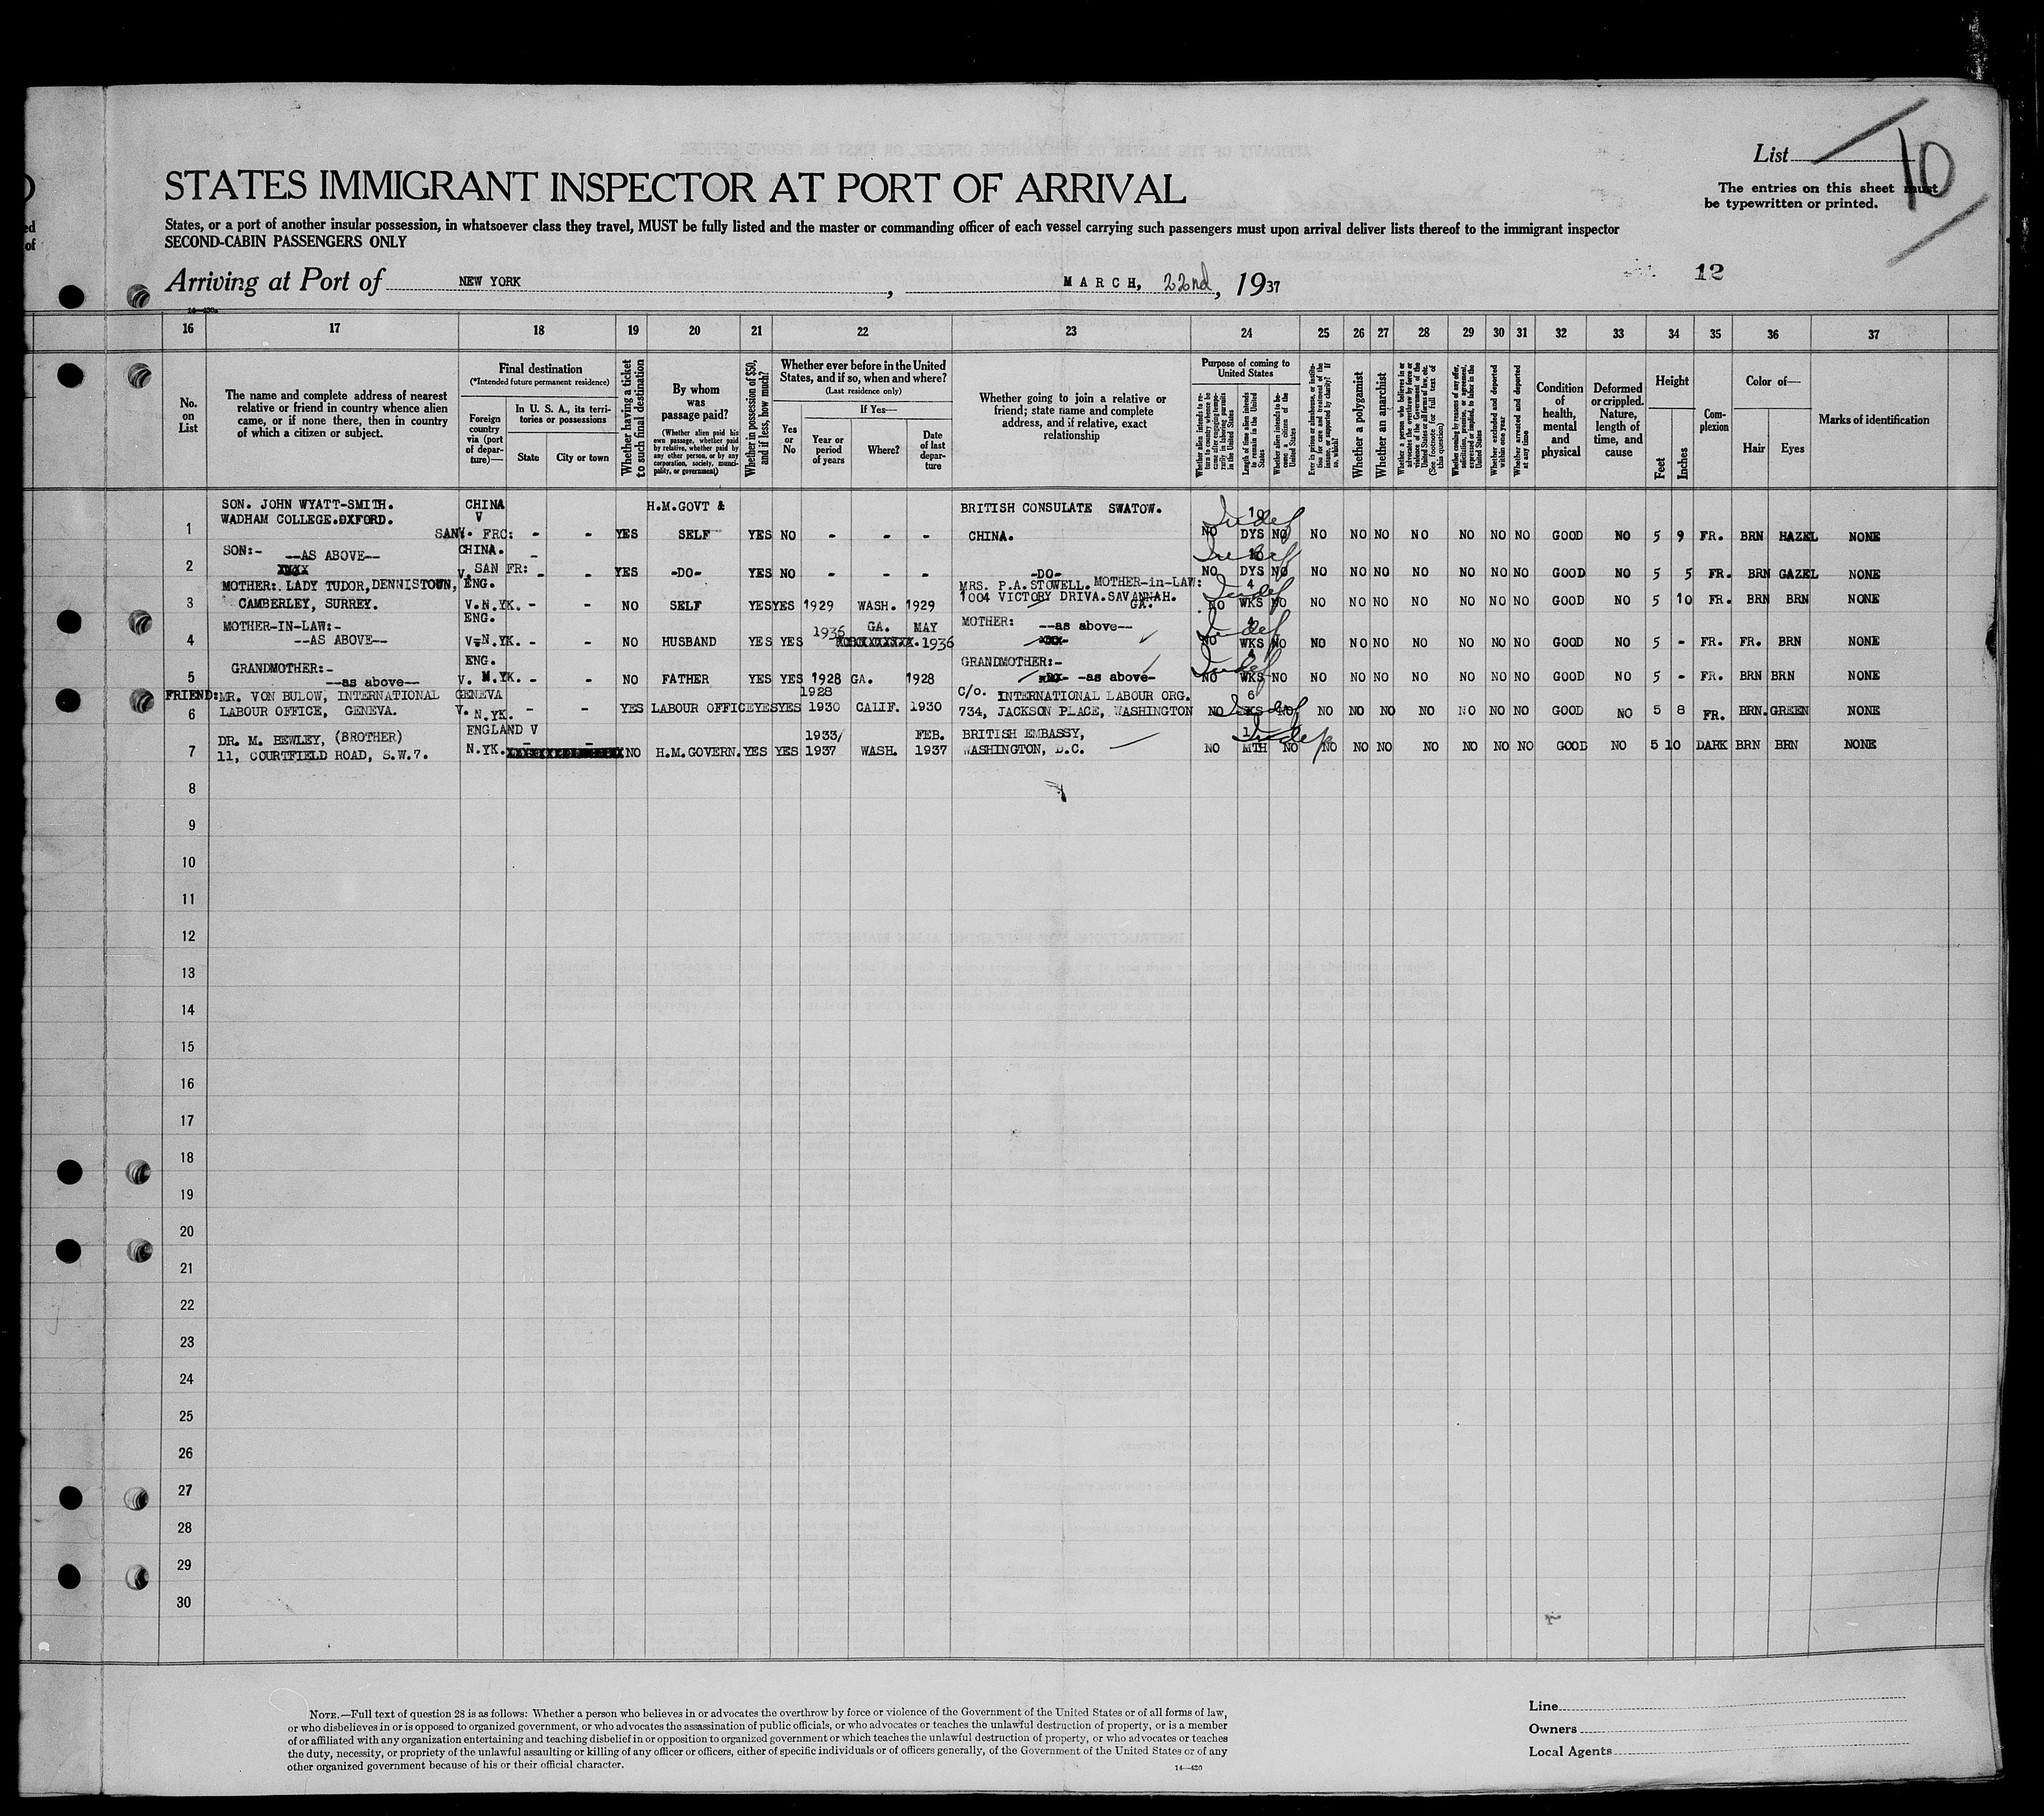 List 10
The entries on this sheet must
be typewritten or printed.
STATES IMMIGRANT INSPECTOR AT PORT OF ARRIVAL
States, or a port of another insular possession, in whatsoever class they travel, MUST be fully listed and the master or commanding officer of each vessel carrying such passengers must upon arrival deliver lists thereof to the immigrant inspector
SECOND-CABIN PASSENGERS ONLY
Arriving at Port of NEW YORK, MARCH, 22nd, 1937
12
16 17 18 19 20 21 22 23 24 25 26 27 28 29 30 31 32 33 34 35 36 37
No. on List
The name and complete address of nearest relative or friend in country whence alien came, or if none there, then in country of which a citizen or subject.
Final destination
(*Intended future permanent residence)
Foreign country via (port of departure)—
In U. S. A., its territories or possessions
State
City or town
Whether having a ticket to such final destination
By whom was passage paid?
(Whether alien paid his own passage, whether paid by relative, whether paid by any other person, or by any corporation, society, municipality, or government)
Whether in possession of $50, and if less, how much?
Whether ever before in the United States, and if so, when and where?
(Last residence only)
Yes or No
If Yes—
Year or period of years
Where?
Date of last departure
Whether going to join a relative or friend; state name and complete address, and if relative, exact relationship
Purpose of coming to United States
Length of time alien intends to remain in the United States
Whether alien intends to become a citizen of the United States
Whether a polygamist
Whether an anarchist
Whether excluded and deported within one year
Whether arrested and deported at any time
Condition of health, mental and physical
Deformed or crippled. Nature, length of time, and cause
Height
Feet
Inches
Complexion
Color of—
Hair
Eyes
Marks of identification
SON. JOHN WYATT-SMITH. CHINA H.M.GOVT & BRITISH CONSULATE SWATOW. 10 Indef
WADHAM COLLEGE.OXFORD. V
1 SAN. FRC: - - YES SELF YES NO - - - CHINA. NO DYS NO NO NO NO NO NO NO NO GOOD NO 5 9 FR. BRN HAZEL NONE
SON:- --AS ABOVE-- CHINA. - 10 Indef
2 XXXX V. SAN FR: - - YES -DO- YES NO - - - -DO- NO DYS NO NO NO NO NO NO NO NO GOOD NO 5 5 FR. BRN GAZEL NONE
MOTHER: LADY TUDOR, DENNISTOUN, ENG. MRS. P.A.STOWELL. MOTHER-in-LAW: 4 Indef
3 CAMBERLEY, SURREY. V.N.YK. - - NO SELF YES YES 1929 WASH. 1929 1004 VICTORY DRIVA.SAVANNAH. GA. NO WKS NO NO NO NO NO NO NO NO GOOD NO 5 10 FR. BRN BRN NONE
MOTHER-IN-LAW:- ENG. 1936 GA. MAY MOTHER: --as above-- Indef
4 --AS ABOVE-- V-N.YK. - - NO HUSBAND YES YES 1936 NO WKS NO NO NO NO NO NO NO NO GOOD NO 5 - FR. FR. BRN NONE
GRANDMOTHER:- ENG. GRANDMOTHER:- 4 Indef
5 --as above-- V. N.YK. - - NO FATHER YES YES 1928 GA. 1928 -as above- NO WKS NO NO NO NO NO NO NO NO GOOD NO 5 - FR. BRN BRN NONE
FRIEND: MR. VON BULOW, INTERNATIONAL GENEVA 1928 C/o. INTERNATIONAL LABOUR ORG. 6 Indef
6 LABOUR OFFICE, GENEVA. V. N.YK. - - YES LABOUR OFFICE YES YES 1930 CALIF. 1930 734, JACKSON PLACE, WASHINGTON NO WKS NO NO NO NO NO NO NO NO GOOD NO 5 8 FR. BRN. GREEN NONE
DR. M. BEWLEY, (BROTHER) ENGLAND V 1933/ FEB. BRITISH EMBASSY, 1 Indef
7 11, COURTFIELD ROAD, S.W.7. N.YK. NO H.M.GOVERN. YES YES 1937 WASH. 1937 WASHINGTON, D.C. NO MTH NO NO NO NO NO NO NO NO GOOD NO 5 10 DARK BRN BRN NONE
8
9
10
11
12
13
14
15
16
17
18
19
20
21
22
23
24
25
26
27
28
29
30
NOTE.—Full text of question 28 is as follows: Whether a person who believes in or advocates the overthrow by force or violence of the Government of the United States or of all forms of law,
or who disbelieves in or is opposed to organized government, or who advocates the assassination of public officials, or who advocates or teaches the unlawful destruction of property, or is a member
of or affiliated with any organization entertaining and teaching disbelief in or opposition to organized government or which teaches the unlawful destruction of property, or who advocates or teaches
the duty, necessity, or propriety of the unlawful assaulting or killing of any officer or officers, either of specific individuals or of officers generally, of the Government of the United States or of any
other organized government because of his or their official character.
14—430
Line
Owners
Local Agents